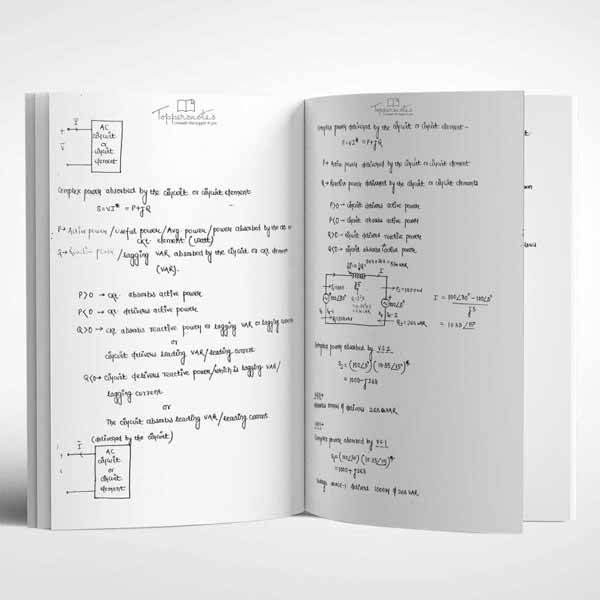 Toppersnotes
AC
circuit
or
circuit
element
Complex power absorbed by the circuit or circuit element
S=VI* = P+jQ
P→ Active power/useful power/Avg power/power absorbed by the ckt or
ckt. element (watt)
Q→ Reactive power/lagging VAR absorbed by the circuit or ckt element
(VAR).
P>0 → ckt absorbs active power
P<0 → ckt delivers active power
Q>0 → ckt absorbs reactive power or lagging VAR or lagging current
or
circuit delivers leading VAR/leading current
Q<0 → circuit delivers reactive power/which is lagging VAR/
lagging current
or
The circuit absorbs leading VAR/leading current
(delivered by the circuit)
AC
circuit
or
circuit
element
Toppersnotes
Complex power delivered by the circuit or circuit element -
S=VI* = P+jQ
P→ Active power delivered by the circuit or circuit element
Q→ Reactive power delivered by the circuit or circuit elements
P>0 → circuit delivers active power
P<0 → circuit absorbs active power
Q>0 → circuit delivers reactive power
Q<0 → circuit absorbs active power
I = 100∠30° - 100∠0° / j5
= 10.35 ∠15°
Complex power absorbed by V.S.2
S2 = (100∠0°)(10.35∠15°)*
= 1000-j268
delivers 268 VAR
Complex power absorbed by V.S.1
= 1000+j268
delivers 1000W & 268 VAR